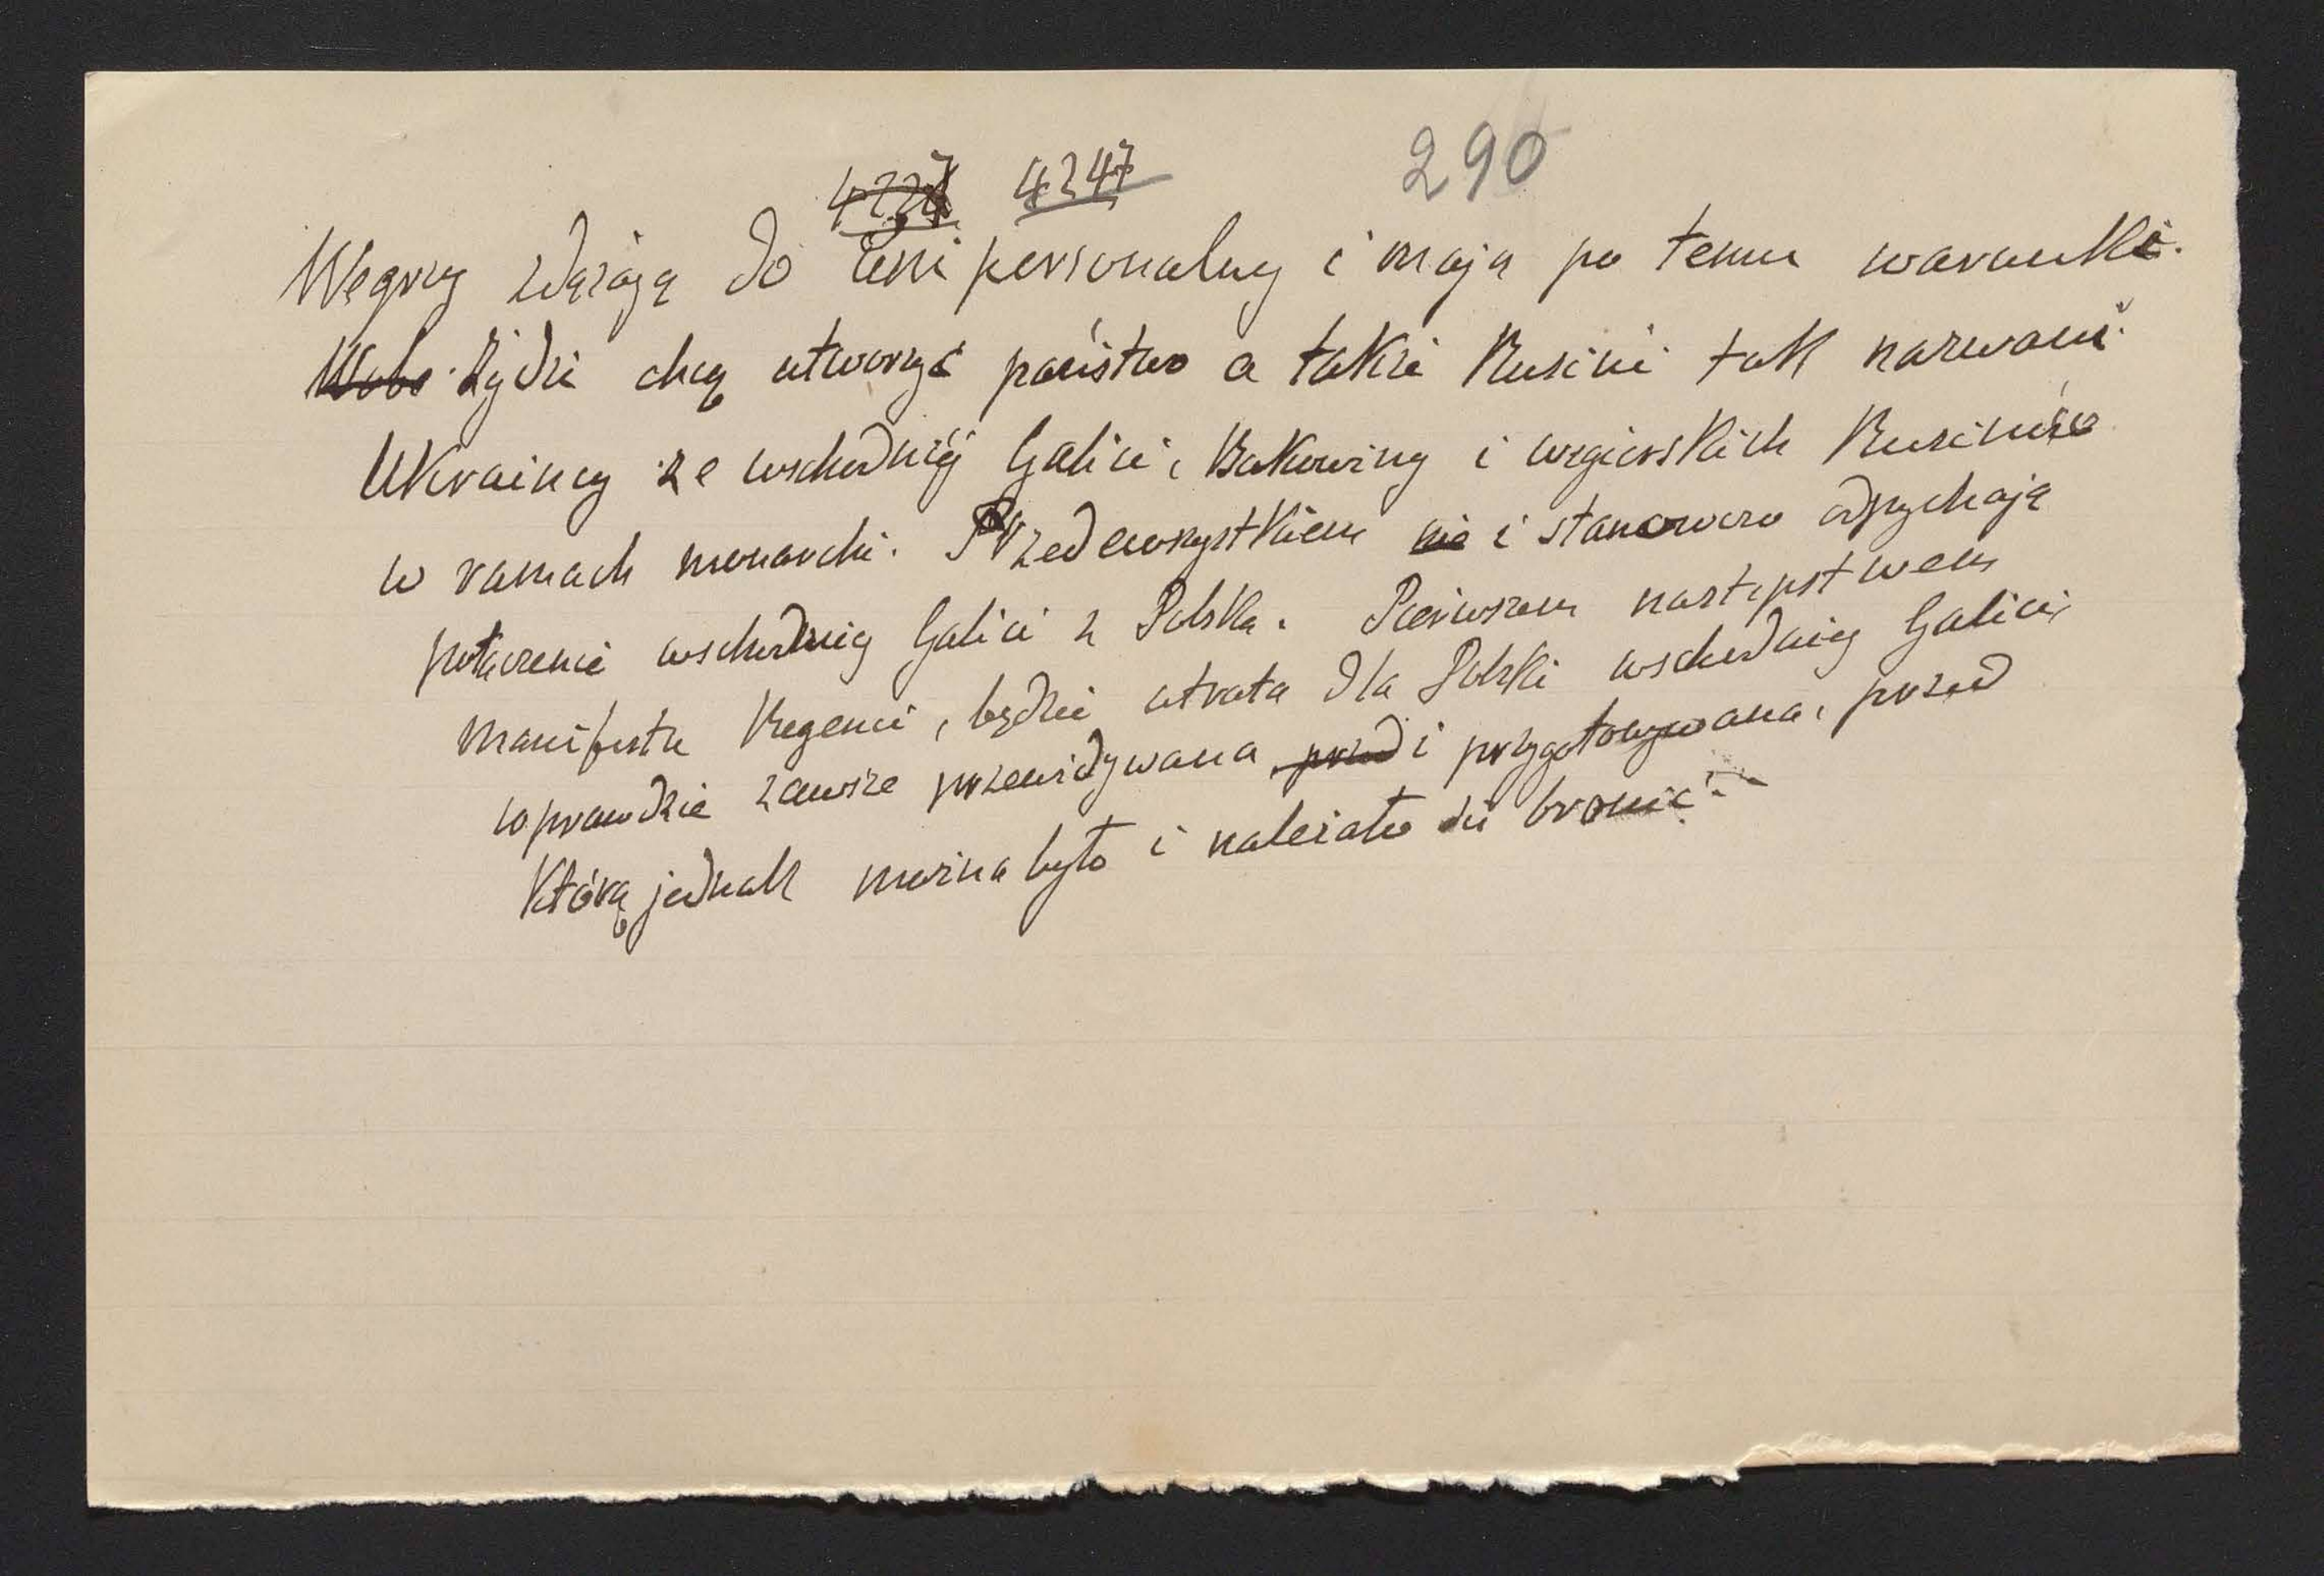 4247 290
Węgrzy zdążają do Uni personalny i mają po temu warunki.
Żydzi chcą utworzyć państwo a także Rusini tak nazwani
Ukraincy ze wschodniej Galicii, Bukowiny i węgierskich Rusinów
w ramach monarchi. Przedewszystkiem nie i stanowczo odpychają
połączenie wschodniej Galicii z Polską. Pierwszem następstwem
manifestu Regencii, będzie utrata dla Polski wschodniej Galicii,
wprawdzie zawsze przewidywana przed i przygotowywana, przed
którą jednak można było i należało się bronić.